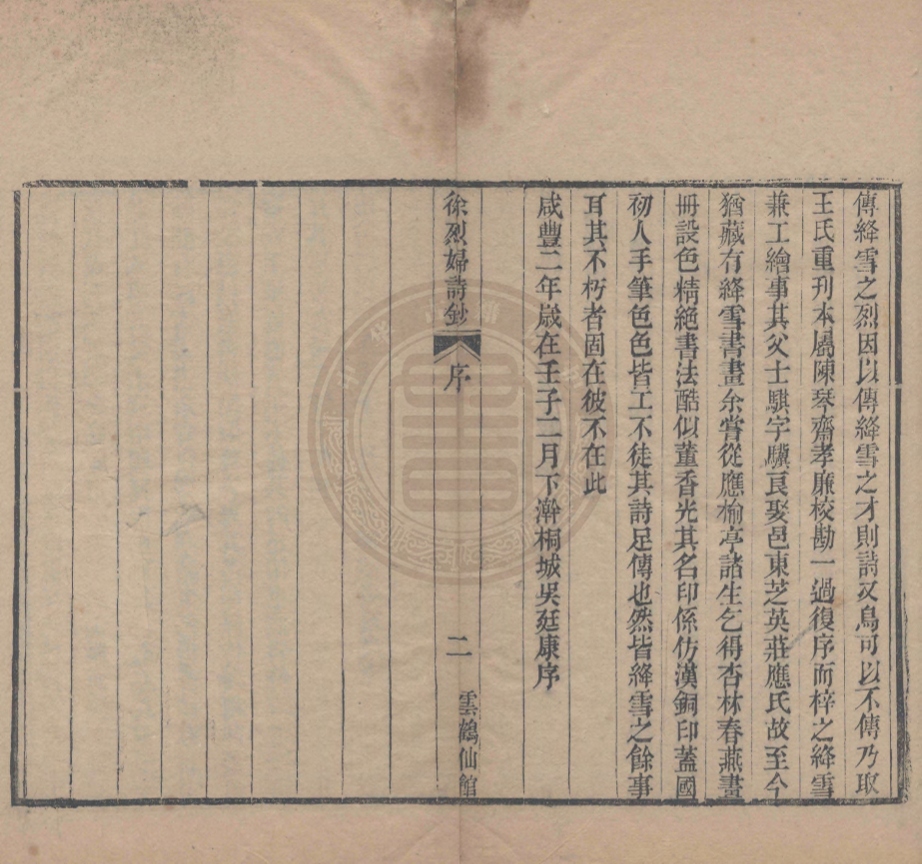 傳絳雪之烈因以傳絳雪之才則詩又烏可以不傳乃取
王氏重刊本屬陳琴齋孝廉校勘一過復序而梓之絳雪
兼工繪事其父士騏字驥良娶邑東芝英莊應氏故至今
猶藏有絳雪書畫余嘗從應榆亭諸生乞得杏林春燕畫
冊設色精絶書法酷似董香光其名印係仿漢銅印蓋國
初人手筆色色皆工不徒其詩足傳也然皆絳雪之餘事
耳其不朽者固在彼不在此
咸豐二年歲在壬子二月下澣桐城吳廷康序
徐烈婦詩鈔 序 二 雲鶴仙館